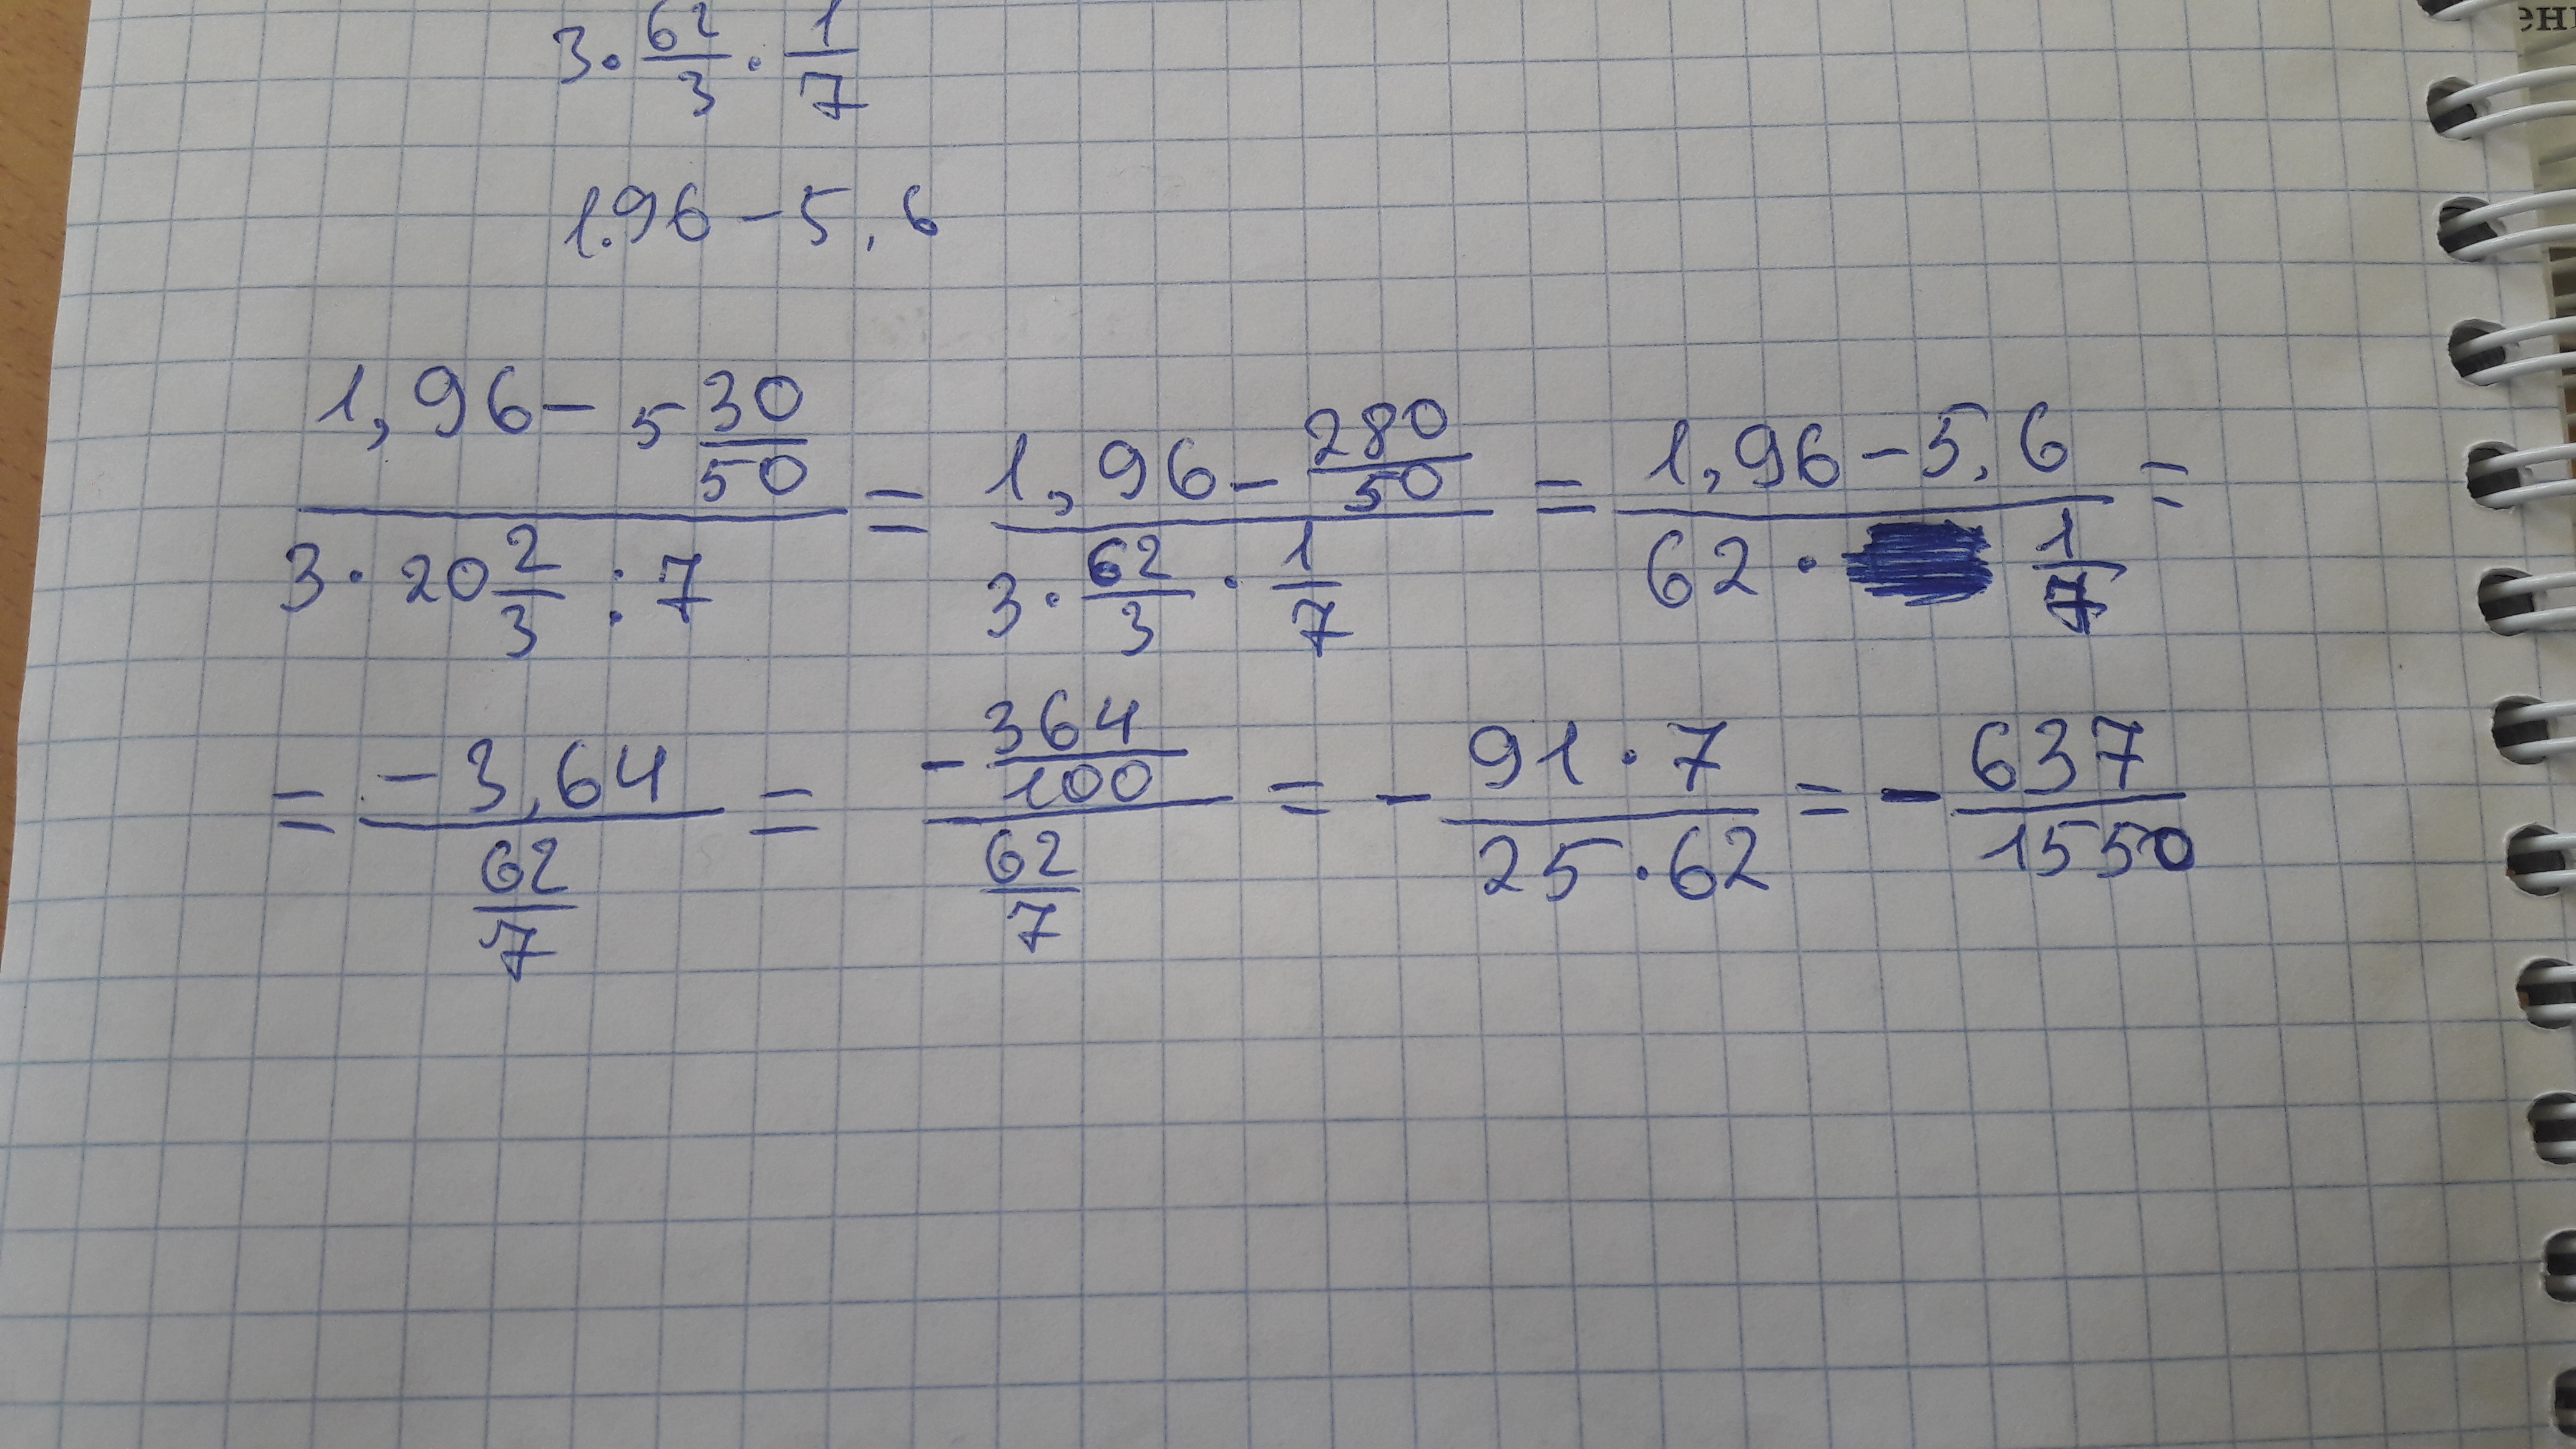 3 · 62/3 · 1/7
1.96 - 5,6
(1,96 - 5 30/50)/(3 · 20 2/3 : 7) = (1,96 - 280/50)/(3 · 62/3 · 1/7) = (1,96 - 5,6)/(62 · 1/7) =
= (-3,64)/(62/7) = (-364/100)/(62/7) = - (91 · 7)/(25 · 62) = - 637/1550